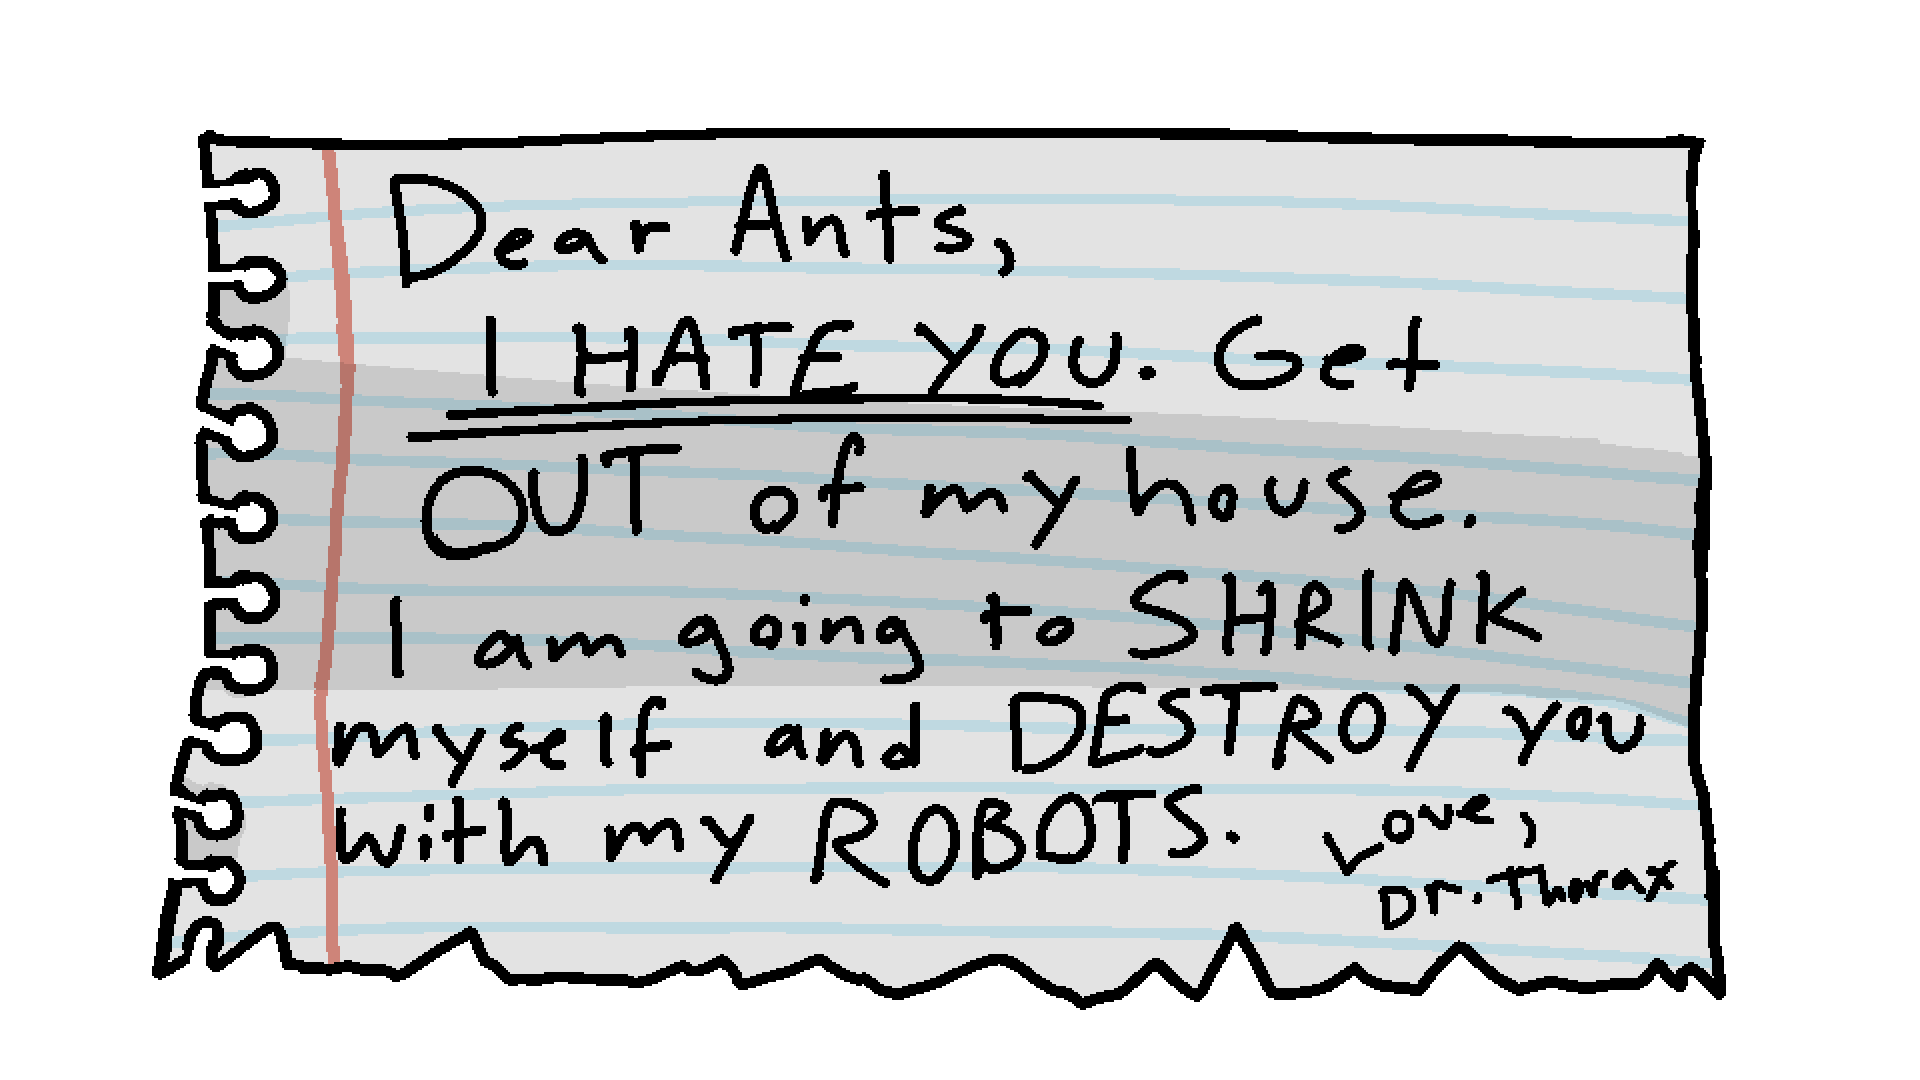 Dear Ants,
I HATE YOU. Get
OUT of my house.
I am going to SHRINK
myself and DESTROY you
with my ROBOTS. Love,
Dr. Thorax